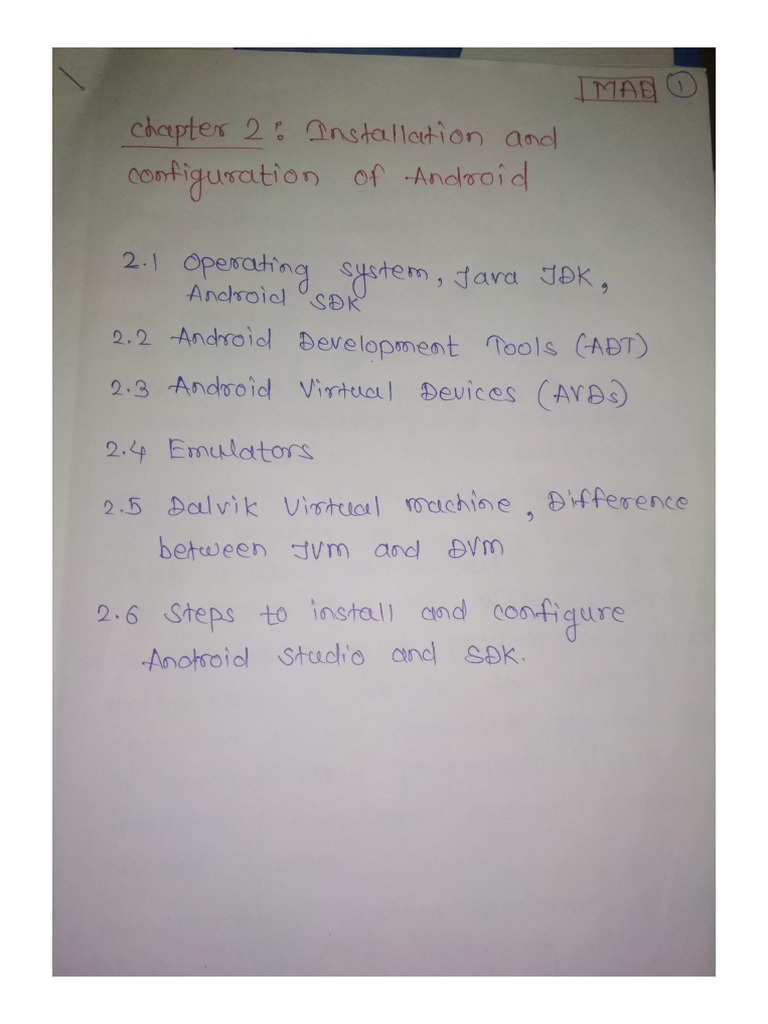 MAD 1
Chapter 2: Installation and
configuration of Android
2.1 Operating system, Java JDK,
Android SDK
2.2 Android Development Tools (ADT)
2.3 Android Virtual Devices (AVDs)
2.4 Emulators
2.5 Dalvik Virtual machine, Difference
between JVM and DVM
2.6 Steps to install and configure
Android Studio and SDK.